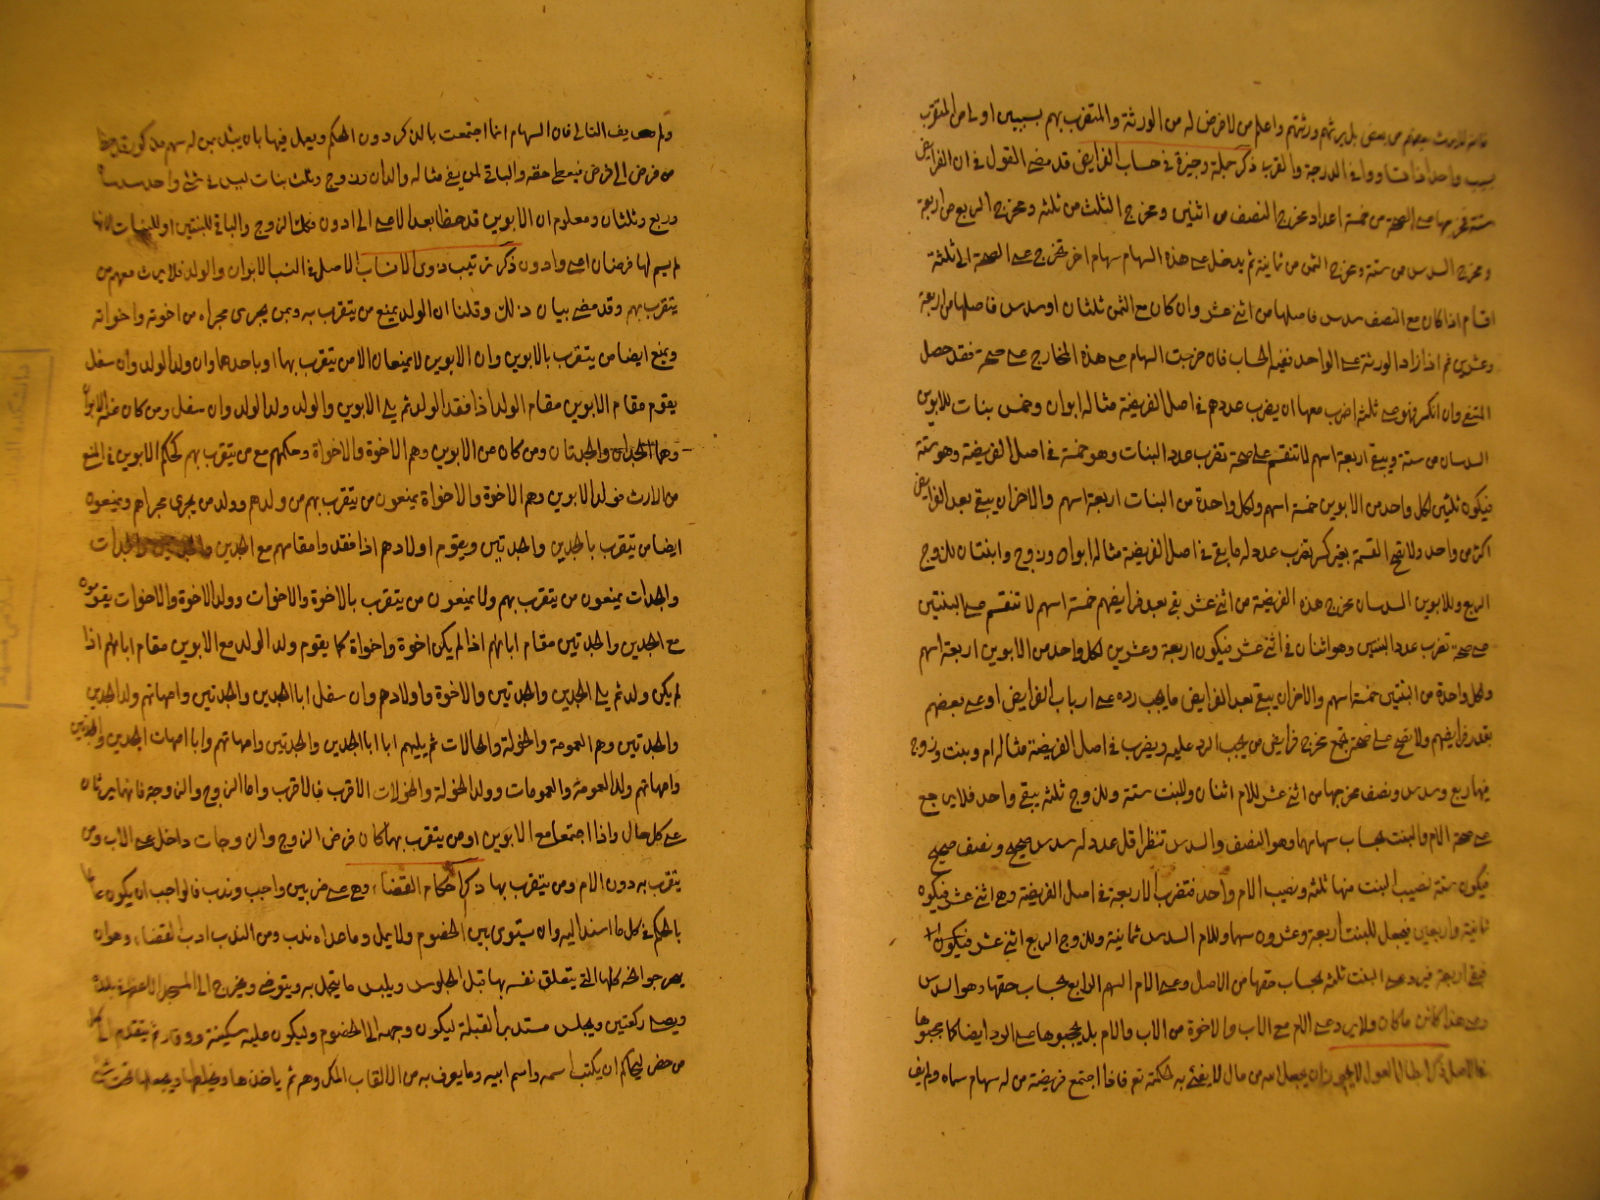 من بعض بل يرثهم ورثتهم واعلم من لا فرض له من الورثة والمتقرب بهم بسببين اولى من المتقرب
بسبب واحد اذا تساووا في الدرجة والقرب ذكر جملة وجيزة في حساب الفرايض قد مضى القول في ان الفرايض
ستة مخرجها على الصحة من خمسة اعداد مخرج النصف من اثنين ومخرج الثلث من ثلثة ومخرج الربع من اربعة
ومخرج السدس من ستة ومخرج الثمن من ثمانية ثم يدخل على هذه السهام سهام اخر تخرج على الصحة الى ثلثة
اقسام اذا كان مع النصف سدس فاصلها من اثنى عشر وان كان مع الثمن ثلثان او سدس فاصلها من اربعة
وعشرين ثم اذا زاد الورثة على الواحد نقيم الحساب فان خرجت السهام على هذه المخارج على صحة فقد حصل
المتغى وان انكسر فهو على ثلثة اضرب معها ان يضرب عددهم في اصل الفريضة مثاله ابوان وخمس بنات للابوين
السدسان من ستة ويبقى اربعة اسهم لا تنقسم على صحة تضرب عدد البنات وهو خمسة في اصل الفريضة وهو ستة
فيكون ثلثين لكل واحد من الابوين خمسة اسهم ولكل واحدة من البنات اربعة اسهم والاخر ان يبقى بعد الفرايض
اكثر من واحد ولا تصح القسمة بغير كسر تضرب عدد له ما بقى في اصل الفريضة مثاله ابوان وزوج وابنتان للزوج
الربع وللابوين السدسان مخرج هذه الفريضة من اثنى عشر بقى بعد فرايضهم خمسة اسهم لا تنقسم على البنتين
على صحة تضرب عدد البنتين وهو اثنان في اثنى عشر فيكون اربعة وعشرين لكل واحد من الابوين اربعة اسهم
ولكل واحدة من البنتين خمسة اسهم والاخر ان يبقى بعد الفرايض ما يجب رده على ارباب الفرايض او على بعضهم
بقدر فرايضهم ولا يصح على صحة يجمع مخرج فرايض من يجب الرد عليه ويضرب في اصل الفريضة مثاله ام وبنت وزوج
فيها ربع وسدس ونصف مخرجها من اثنى عشر للام اثنان وللبنت ستة وللزوج ثلثة يبقى واحد فلا يرجع
على صحة الام والبنت بحساب سهامهما وهو النصف والسدس تنظر اقل عدد له سدس صحيح ونصف صحيح
فيكون ستة نصيب البنت منها ثلثة ونصيب الام واحد فتضرب الاربعة في اصل الفريضة وهي اثنى عشر فيكون
ثمانية واربعين فيجعل للبنت اربعة وعشرون سهما وللام السدس ثمانية وللزوج الربع اثنى عشر فيكون
فبقى اربعة فيرد على البنت ثلثة بحساب حقها من الاصل وعلى الام السهم الرابع بحساب حقها وهو السدس
وعلى هذا كائن ما كان ولا يرد على الام مع الاب والاخوة من الاب والام بل يحجبوها على الرد ايضا كما يحجبوها
ذكر ابطال العول لا يجوز ان يجعل الله من مال لا يفى به حكمته نعم فاذا اجتمع فريضة من له سهام سماه ولم يف
التالي فان السهام انما اجتمعت بالذكر دون الحكم ويعمل فيها بان يبدا بمن له سهم مذكور
من فرض الى فرض فيعطى حقه والباقي لمن بقي مثاله والدان وزوج وثلث بنات ليس في شئ واحد سدسان
وربع وثلثان ومعلوم ان الابوين قد حظا بعد الاعلى الى ادون وكذلك الزوج والباقي للبنتين او للبنات
لم يسم لها فرضان اعلى وادون ذكر ترتيب ذوى الانساب الاصل في النسب الابوان والولد فلا يرث معهم من
يتقرب بهم وقد مضى بيان ذلك وقلنا ان الولد يمنع من يتقرب به وبمن يجرى مجراه من اخوته واخواته
ويمنع ايضا من يتقرب بالابوين وان الابوين لا يمنعان الا من يتقرب بهما او باحدهما وان ولد الولد وان سفل
يقوم مقام الابوين مقام الولد اذا فقد الولد ثم يلى الابوين والولد ولد الولد وان سفل ومن كان
وهما الجدان والجدتان ومن كان من الابوين وهم الاخوة والاخواة وحكمهم مع من يتقرب بهم كحكم الابوين في المنع
من الارث فولد الابوين وهم الاخوة والاخواة يمنعون من يتقرب بهم من ولدهم وولد من يجرى مجراهم ويمنعون
ايضا من يتقرب بالجدين والجدتين ويقوم اولادهم اذا فقدوا مقامهم مع الجدين والجدات
والجدات يمنعون من يتقرب بهم ولا يمنعون من يتقرب بالاخوة والاخوات وولد الاخوة والاخوات يقومون
مع الجدين والجدتين مقام ابائهم اذا لم يكن اخوة واخواة كما يقوم ولد الولد مع الابوين مقام ابائهم اذا
لم يكن ولد ثم يلى الجدين والجدتين والاخوة واولادهم وان سفل ابا الجدين والجدتين وامهاتهم ولد الجدين
والجدتين وهم العمومة والخؤلة والخالات ثم يليهم ابا ابا الجدين والجدتين وامهاتهم وابا امهات الجدين والجدتين
وامهاتهم ولد العمومة والعمومات وولد الخؤلة والخؤلات الاقرب فالاقرب واما الزوج والزوجة فانهما يرثان
على كل حال واذا اجتمعا مع الابوين او من يتقرب بهما كان فرض الزوج والزوجات داخل على الاب ومن
يتقرب به دون الام ومن يتقرب بها ذكر احكام القضاء وهي على ضربين واجب وندب فالواجب ان يكون عالما
بالحكم في كل ما اسند اليه وان يستوى بين الخصوم ولا يميل وما عداه ندب ومن الندب ادب القضاء وهو ان
حوائجه كلها التي يتعلق نفسه بها قبل الجلوس ويلبس ما يتجمل به ويتوضى ويخرج الى المسجد الاعظم
ويصلى ركعتين ويجلس مستدبر القبلة ليكون وجهه الى الخصوم وليكون عليه سكينة ووقار ثم يتقدم الى كل
من حضر ليحاكم ان يكتب اسمه واسم ابيه وما يعرف به من الالقاب ثم ياخذها